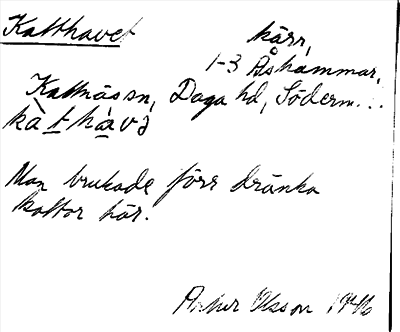 Katthavet kärr,
1-3 Åshammar,
Kattnäs sn, Daga hd, Söderm...
kàt hàvə
Man brukade förr dränka
kattor här.
Olsson 1946